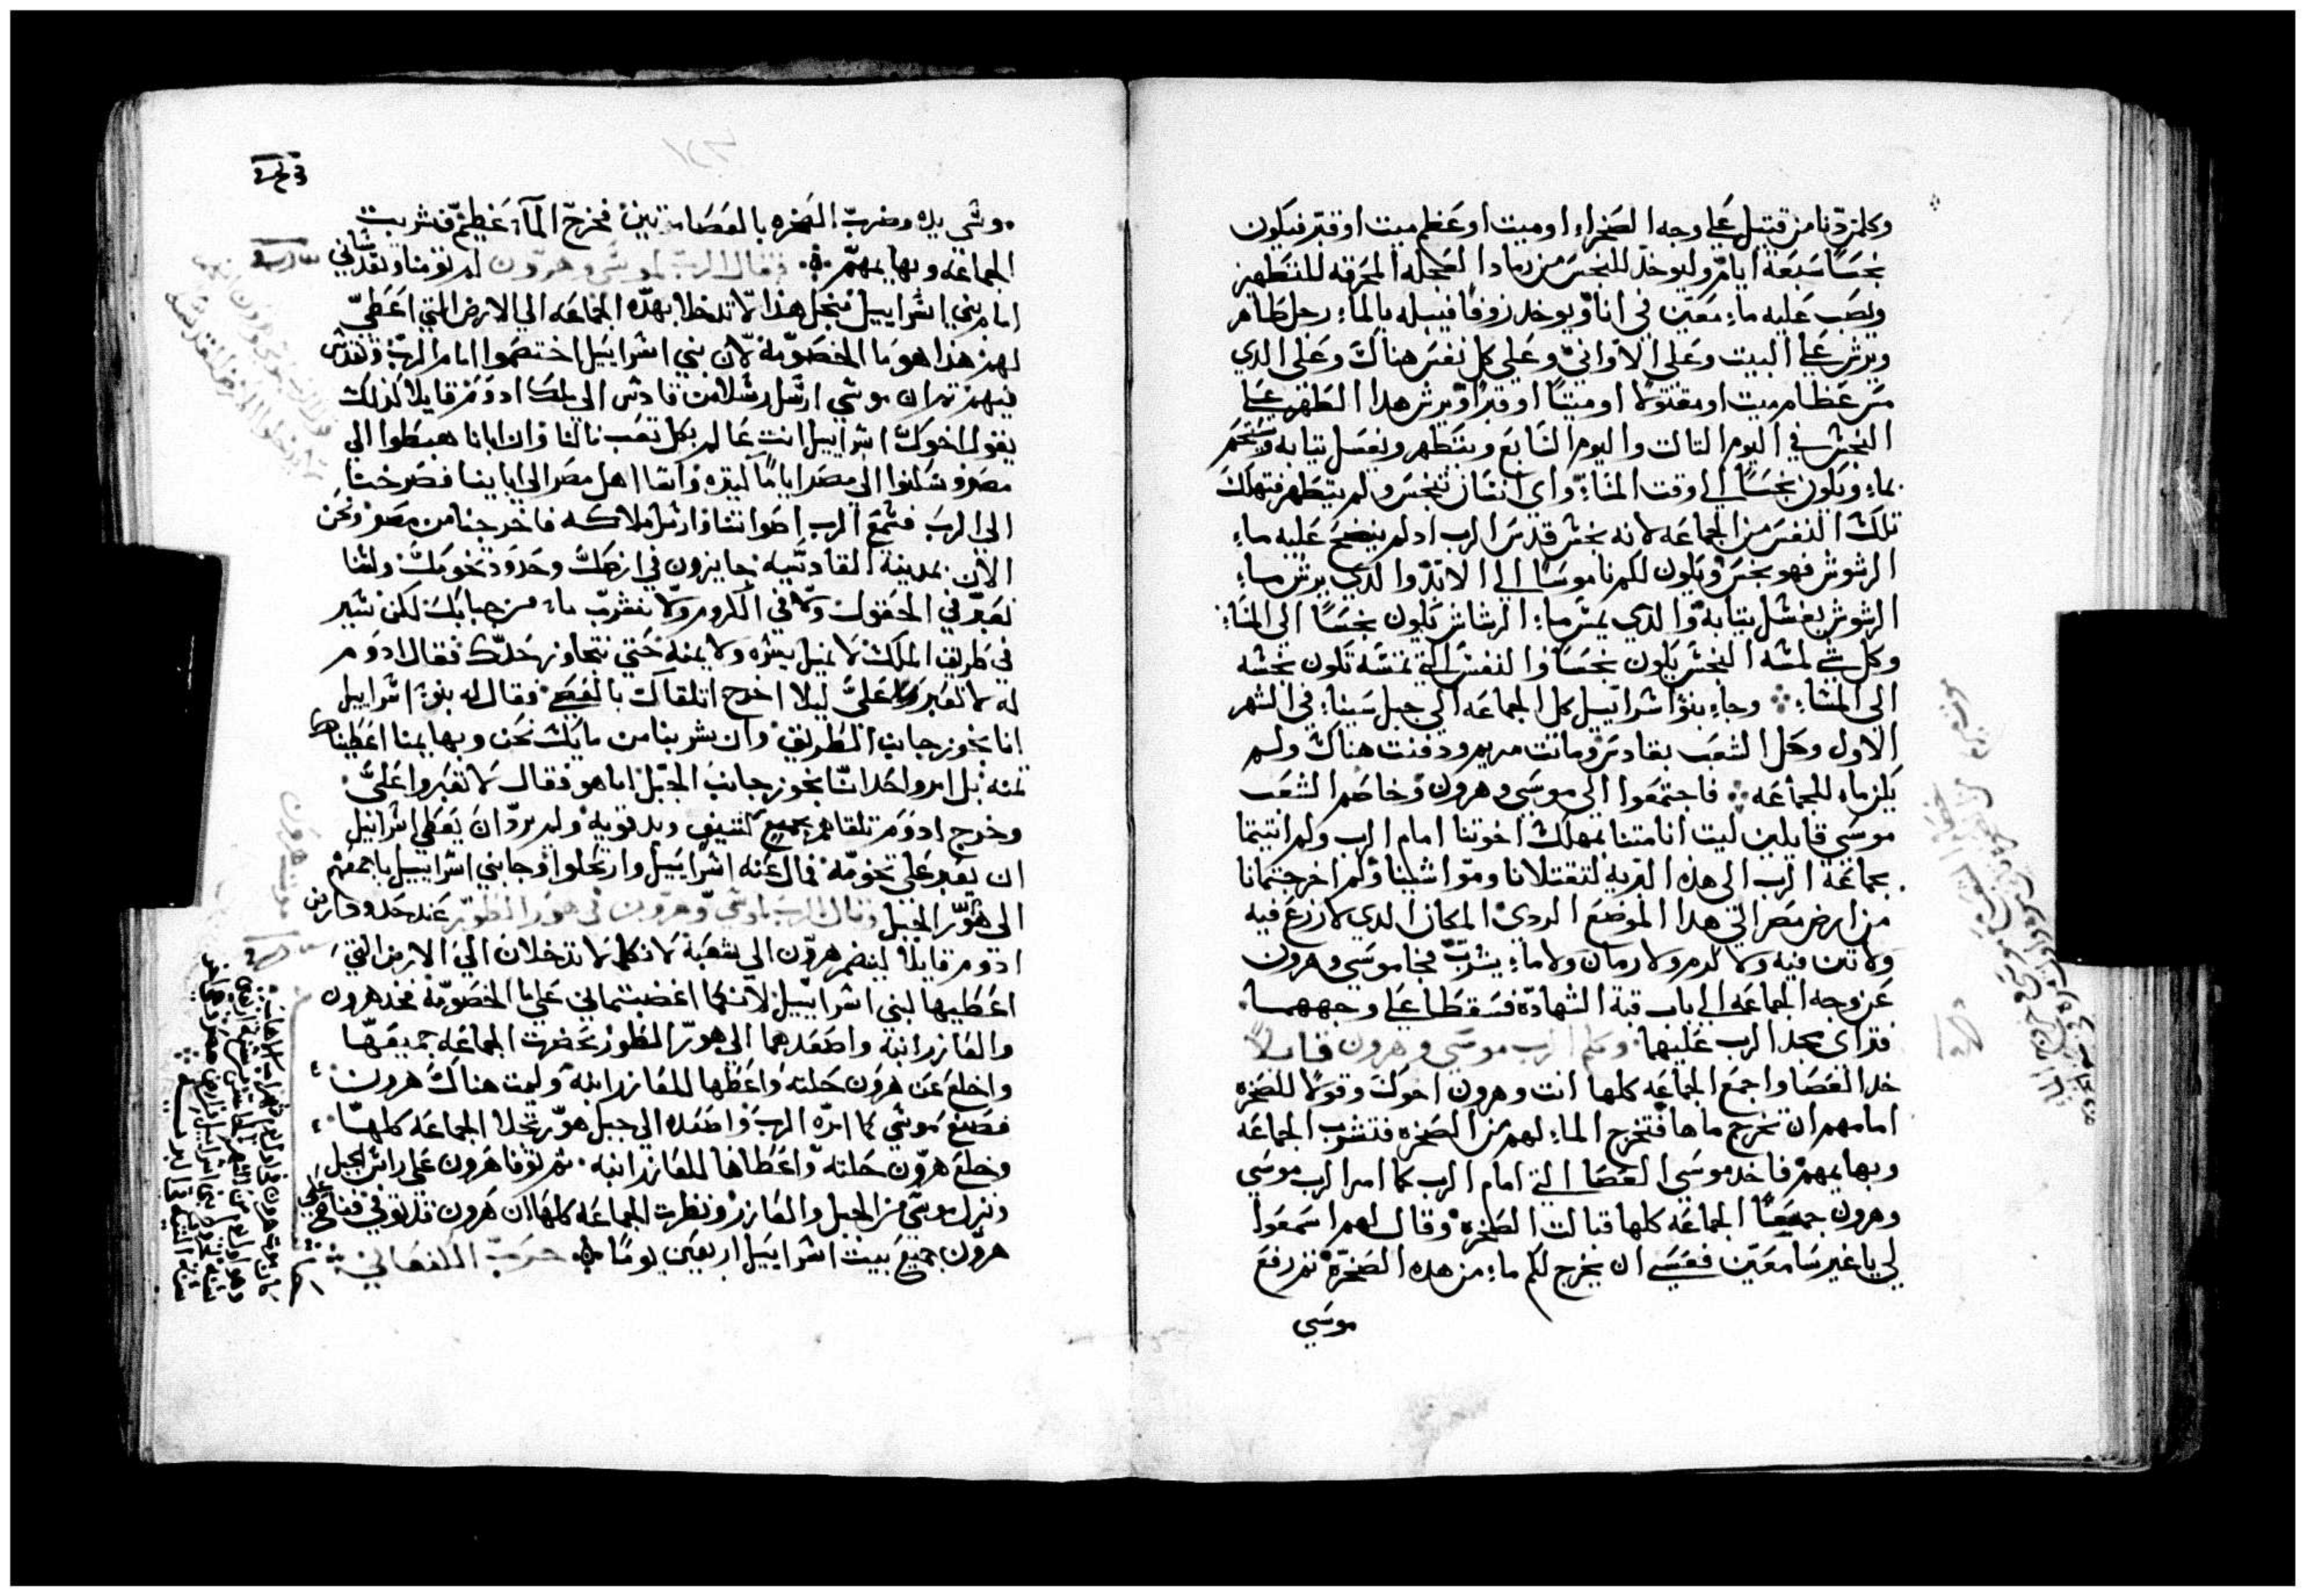 وكلمن دنا من قتيل على وجه الصحراء او ميت او عظم ميت او قبر فيكون
نجسًا سبعة ايام وليوخد للنجس من رماد العجله المحرقه للتطهير
ويصب عليه ماء معين في انا ويوخد زوفا فيبله بالماء رجل طاهر
ويرش على البيت وعلى الاواني وعلي كل نفس هناك وعلى الدي
مس عظام ميت او مقتولا او ميتًا او قبرًا ويرش هدا الطهر على
النجس في اليوم التالت واليوم السابع ويتطهر ويغسل تيابه ويستحم
بماء ويكون نجسًا الي اوقت المساء واي انسان تنجس ولم يتطهر فتهلك
تلك النفس من الجماعه لانه نجس قدس الرب اد لم ينضح عليه ماء
الرشوش فهو نجس ويكون لكم ناموسًا الي الابد والدي يرش ماء
الرشوش يغسل تيابه والدي يمس ماء الرشاش يكون نجسًا الى المساء
وكل شي لمسه النجس يكون نجسًا والنفس التي تمسه تكون نجسه
الي المساء وجاء بنو اسراييل كل الجماعه الي جبل سينا في الشهر
الاول وحل الشعب بقادس وماتت مريم ودفنت هناك ولم
يكن ماء للجماعه فاجتمعوا الي موسي وهرون وخاصم الشعب
موسي قايلين ليت اننا متنا بمهلك اخوتنا امام الرب ولم اتيتما
بجماعة الرب الى هذه البريه لتقتلانا ومواشينا ولم اخرجتمانا
من ارض مصر الي هدا الموضع الردي المكان الدي لا زرع فيه
ولا تين فيه ولا كرم ولا رمان ولا ماء يشرب فجا موسي وهرون
عن وجه الجماعه الي باب قبة الشهاده فسقطا على وجههما
فتراى مجد الرب عليهما وكلم الرب موسي وهرون قايلاً
خد العصا واجمع الجماعه كلها انت وهرون اخوك وقولا للصخره
امامهم ان تخرج ماها فتخرج الماء لهم من الصخره فتشرب الجماعه
وبهايمهم فاخد موسي العصا التي امام الرب كما امر الرب موسي
وهرون جميعًا الجماعه كلها قبالت الصخره وقال لهم اسمعوا
لي يا غير سامعين فعسي ان يخرج لكم ماء من هده الصخره تم رفع
موسي
موسي يده وضرب الصخره بالعصا مرتين فخرج الماء عظيم فشربت
الجماعه وبهايمهم فقال الرب لموسي وهرون لم تومنا وتقدساني
امام بني اسراييل من اجل هذا لا تدخلا بهذه الجماعه الي الارض التي اعطي
لهم هذا هو ما الخصومه لان بني اسراييل اختصموا امام الرب وتقدس
فيهم تم ان موسي ارسل رسلا من قادس الي ملك ادوم قايلا كذلك
يقول اخوك اسراييل انت عالم بكل تعب نالنا وان ابانا هبطوا الي
مصر وسكنوا الي مصر اياما كتيره واسا اهل مصر الي ابايينا فصرخنا
الي الرب فسمع الرب اصواتنا وارسل ملاكه فاخرجنا من مصر ونحن
الان بمدينة القادسيه جايزون في ارضك وحدود تخومك ولسنا
نعبر في الحقول ولا في الكروم ولا نشرب ماء من جبابك لكن نسير
في طريق الملك لا نميل يسره ولا يمنه حتي نتجاوز حدك فقال ادوم
له لا تعبر علي ليلا اخرج اتلقاك بالقصي فقال له بنو اسراييل
انا نجوز جانب الطريق وان شربنا من مايك نحن وبهايمنا اعطيناك
تمنه بل امر واحد اننا نجوز جانب الجبل اما هو فقال لا تعبروا علي
وخرج ادوم تلقاهم بجميع كتيف ويد قويه ولم يرد ان يعطي اسراييل
ان يعبر علي تخومه فمال عنه اسراييل وارتحلوا وجا بني اسراييل باجمعهم
الى هور الجبل وقال الرب لموسي وهرون في هور الطور عند حدود ارض
ادوم قايلا لينضم هرون الي شعبه لانكما لا تدخلان الي الارض التي
اعطيها لبني اسراييل لانكما اغضبتماني علي ما الخصومه فخد هرون
والعازر ابنه واصعدهما الي هور الطور بحضرت الجماعه جميعها
واخلع عن هرون حلته واعطها للعازر ابنه وليمت هناك هرون
فصنع موسي كما امره الرب واصعده الي جبل هور تجاه الجماعه كلها
وخلع هرون حلته واعطاها للعازر ابنه تم توفا هرون على راس الجبل
ونزل موسي من الجبل والعازر ونظرت الجماعه كلها ان هرون قد توفي فناح علي
هرون جميع بيت اسراييل اربعين يومًا حرب الكنعاني